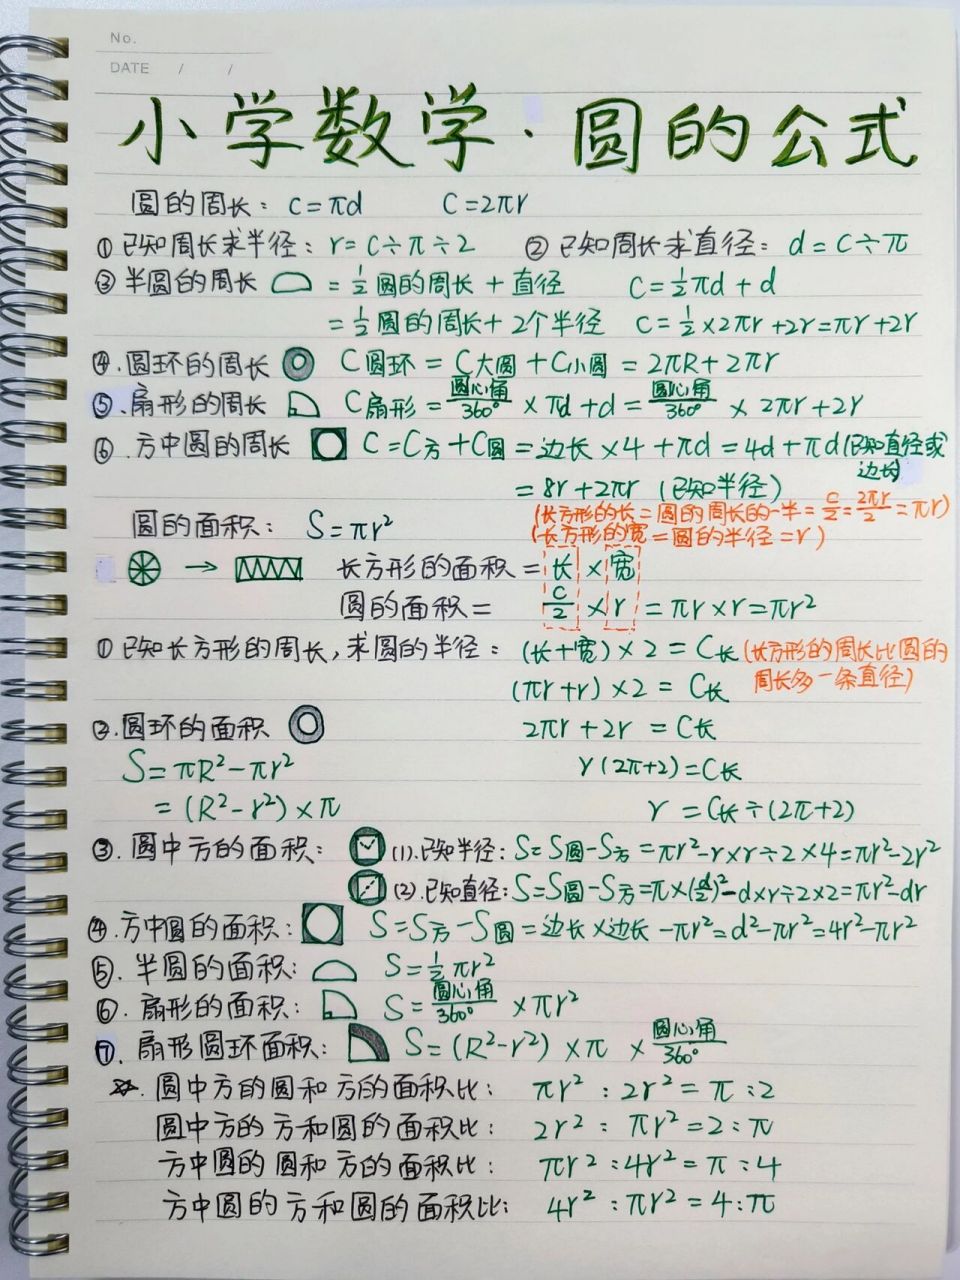 No.
DATE / /
小学数学·圆的公式
圆的周长: C=πd C=2πr
①已知周长求半径: r=C÷π÷2 ②已知周长求直径: d=C÷π
③半圆的周长 =½圆的周长+直径 C=½πd+d
=½圆的周长+2个半径 C=½×2πr+2r=πr+2r
④.圆环的周长 C圆环=C大圆+C小圆=2πR+2πr
⑤.扇形的周长 C扇形=圆心角/360°×πd+d=圆心角/360°×2πr+2r
⑥.方中圆的周长 C=C方+C圆=边长×4+πd=4d+πd(已知直径或边长)
=8r+2πr (已知半径)
(长方形的长=圆的周长的一半=C/2=2πr/2=πr)
圆的面积: S=πr²
(长方形的宽=圆的半径=r)
→ 长方形的面积=长×宽
圆的面积= C/2×r=πr×r=πr²
①已知长方形的周长,求圆的半径: (长+宽)×2=C长 (长方形的周长比圆的周长多一条直径)
(πr+r)×2=C长
②.圆环的面积 2πr+2r=C长
S=πR²-πr² r(2π+2)=C长
=(R²-r²)×π r=C长÷(2π+2)
③.圆中方的面积: (1).已知半径:S=S圆-S方=πr²-r×r÷2×4=πr²-2r²
(2).已知直径:S=S圆-S方=π×(d/2)²-d×r÷2×2=πr²-dr
④.方中圆的面积: S=S方-S圆=边长×边长-πr²=d²-πr²=4r²-πr²
⑤.半圆的面积: S=½πr²
⑥.扇形的面积: S=圆心角/360°×πr²
⑦.扇形圆环面积: S=(R²-r²)×π×圆心角/360°
☆.圆中方的圆和方的面积比: πr²:2r²=π:2
圆中方的方和圆的面积比: 2r²:πr²=2:π
方中圆的圆和方的面积比: πr²:4r²=π:4
方中圆的方和圆的面积比: 4r²:πr²=4:π